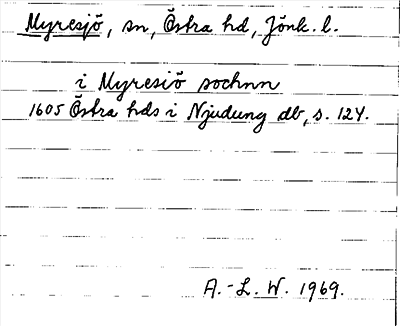 Myresjö, sn, Östra hd, Jönk. l.
i Myresiö sochnn
1605 Östra hds i Njudung db, s. 124.
A.-L. W. 1969.